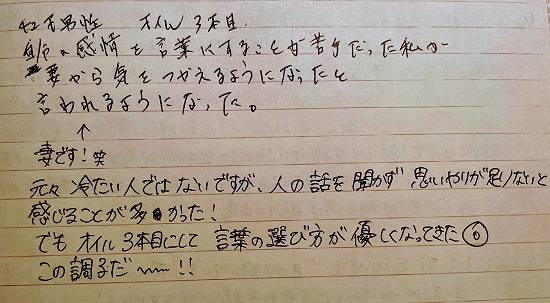 男性 オイル3本目.
自分の感情を言葉にすることが苦手だった私が
妻から気をつかえるようになったと
言われるようになった。
↑
妻です!笑
元々冷たい人ではないですが、人の話を聞かず思いやりが足りないと
感じることが多かった!
でもオイル3本目にして言葉の選び方が優しくなってきた
この調子だ〜〜!!